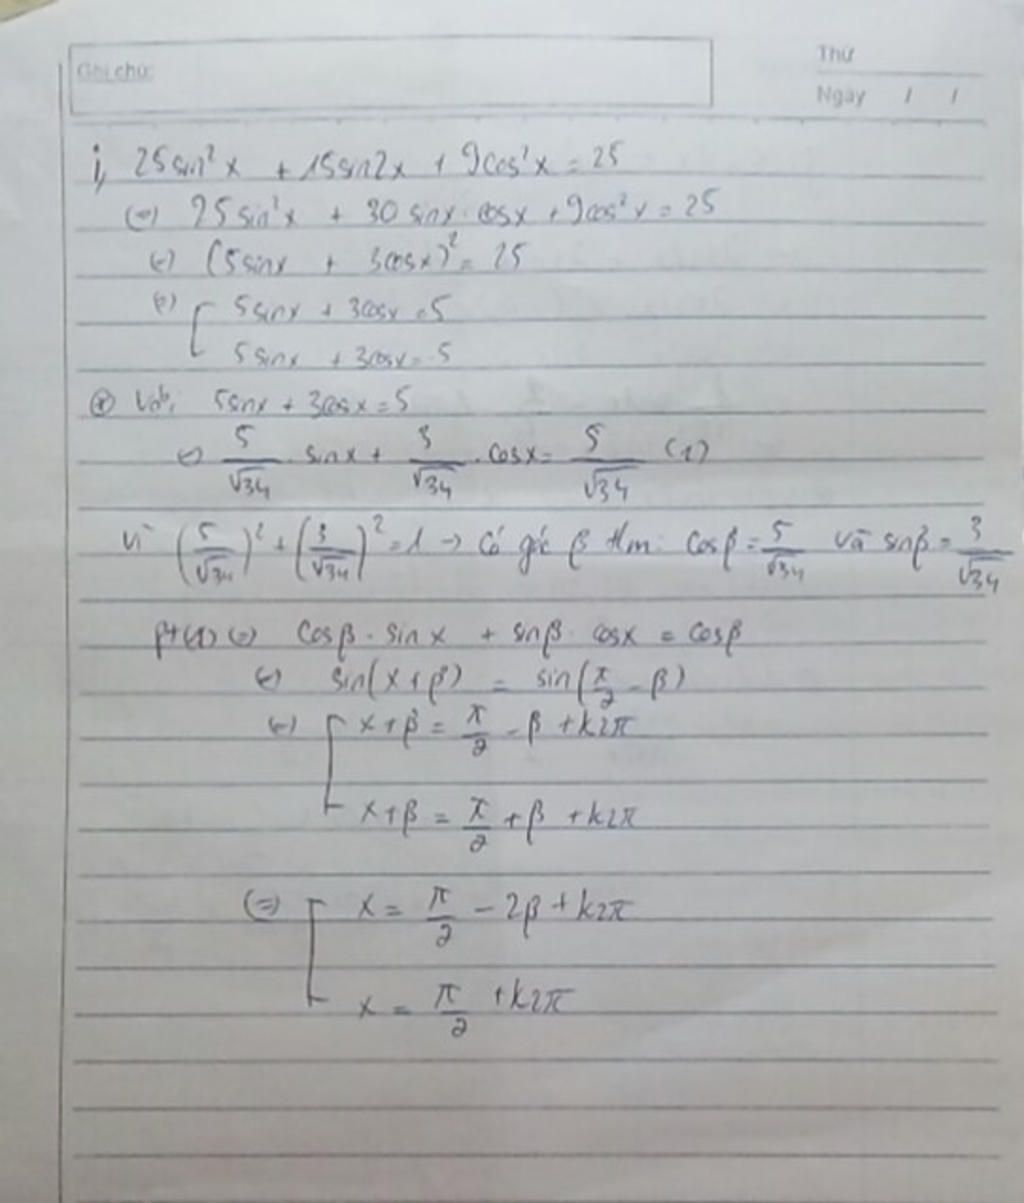 Ghi chú:
Thứ
Ngày / /
i, 25sin²x + 15sin2x + 9cos²x = 25
(=) 25sin²x + 30 sinx · cosx + 9cos²x = 25
(=) (5sinx + 3cosx)² = 25
(=) [ 5sinx + 3cosx = 5
5sinx + 3cosx = -5
⊛ Với: 5sinx + 3cosx = 5
(=) 5/√34 · sinx + 3/√34 · cosx = 5/√34 (1)
Vì (5/√34)² + (3/√34)² = 1 → Có góc β t/m: cosβ = 5/√34 và sinβ = 3/√34
pt(1) (=) cosβ · sinx + sinβ · cosx = cosβ
(=) sin(x+β) = sin(π/2 - β)
(=) [ x+β = π/2 - β + k2π
x+β = π/2 + β + k2π
(=) [ x = π/2 - 2β + k2π
x = π/2 + k2π